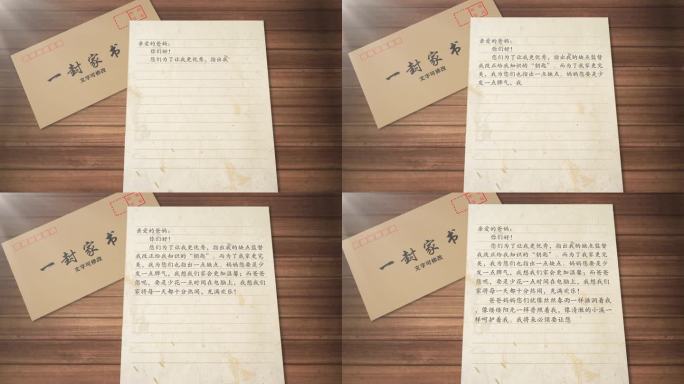 一封家书
文字可修改
亲爱的爸妈：
你们好！
你们为了让我更优秀，指出我
一封家书
文字可修改
亲爱的爸妈：
你们好！
你们为了让我更优秀，指出我的缺点监督
我改正给我知识的“钥匙”。而为了我家更完
美，我为您们也指出一点缺点。妈妈您要是少
发一点脾气，我
一封家书
文字可修改
亲爱的爸妈：
你们好！
你们为了让我更优秀，指出我的缺点监督
我改正给我知识的“钥匙”。而为了我家更完
美，我为您们也指出一点缺点。妈妈您要是少
发一点脾气，我想我们家会更加温馨；而爸爸
您呢，要是少花一点时间在电脑上，我想我们
家将每一天都十分热闹，充满欢乐！
一封家书
文字可修改
亲爱的爸妈：
你们好！
你们为了让我更优秀，指出我的缺点监督
我改正给我知识的“钥匙”。而为了我家更完
美，我为您们也指出一点缺点。妈妈您要是少
发一点脾气，我想我们家会更加温馨；而爸爸
您呢，要是少花一点时间在电脑上，我想我们
家将每一天都十分热闹，充满欢乐！
爸爸妈妈您们就像丝丝春雨一样滋润着我
，像缕缕阳光一样普照着我，像清澈的小溪一
样呵护着我。我将来必须要让您